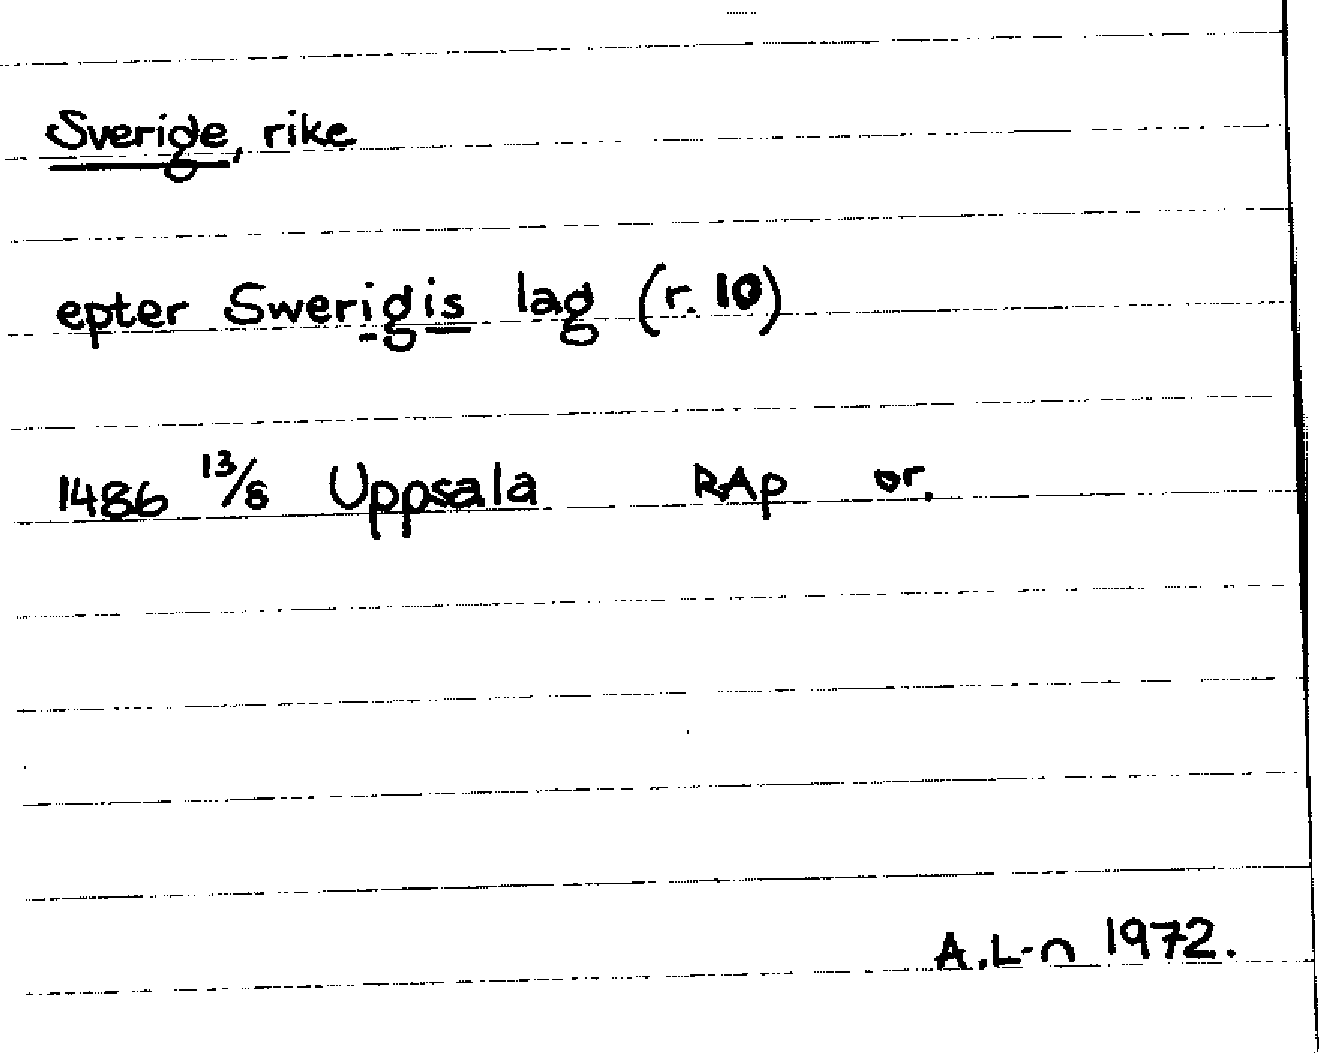 Sverige, rike
epter Swerigis lag (r. 10)
1486 13/8 Uppsala RAp or.
A.L-n 1972.